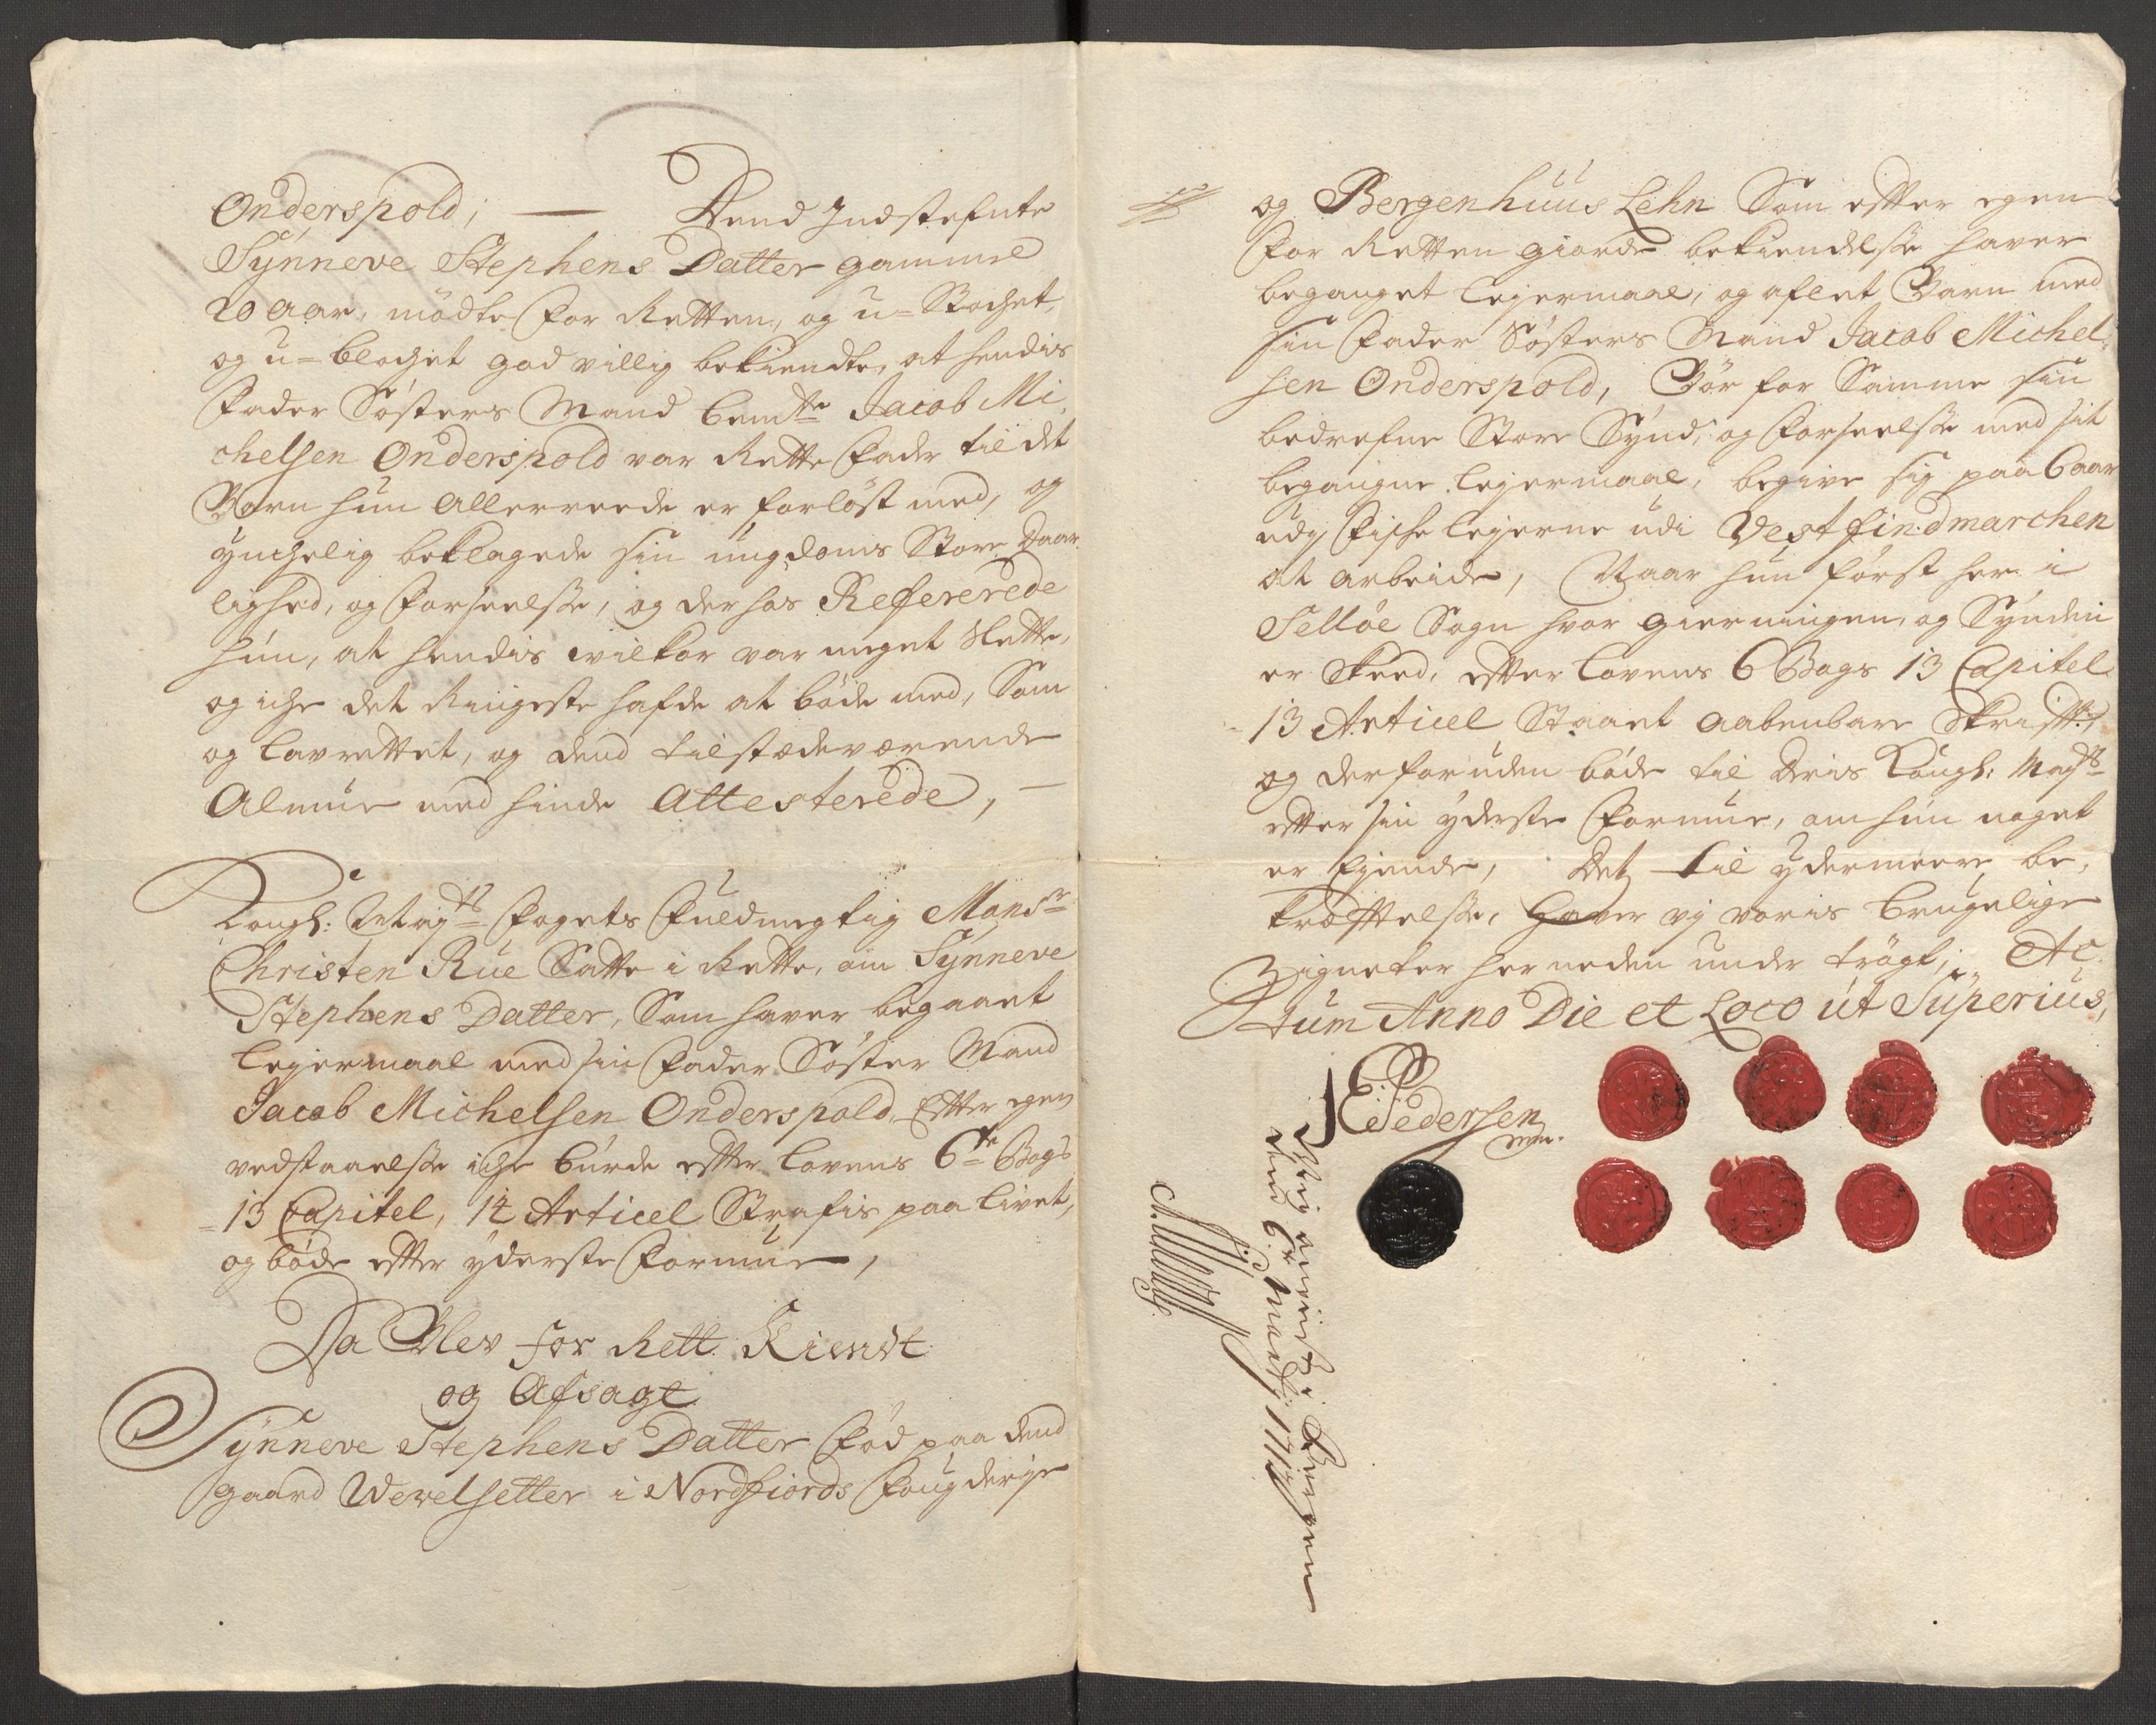 Onderspold; — Dend Indstefnte
Sÿnneve Stephens Datter gammel
20 aar, mødte for Retten, og u=Stochet,
og u=blochet godvillig bekiendte, at hendis
Fader Søsters Mand bemte Jacob Mi,
chelsen Onderspold var Rette Fader til det
Barn hun allerreede er forløst med, og
ynchelig beklagede sin ungdoms Store Daar,
lighed, og forseelsse, og der hos Refererede
hun, at hendis vilkor var meget Slette,
og iche det Ringeste hafde at bøde med, Som
og Lavrettet, og dend tilstædeværende
Almue med hinde Attesterede, —
Kongl: Mayts Fogets Fuldmegtig Monsr
Christen Rue Satte i Rette, om Sÿnneve
Stephens Datter, Som haver begaaet
Lejermaal med sin Fader Søster Mand
Jacob Michelsen Onderspold Efter egen
vedstaaelsse iche burde efter Lovens 6te Bogs
13 Capitel, 14 Articel Straffis paa Livet,
og bøde efter yderste Formue,
Da Blev for Rett Kiendt
og Afsagt
Sÿnneve Stephens Datter Fød paa dend
gaard Wevelsetter i Nordfiords Fougderje
og Bergenhuus Lehn Som efter egen
for Retten giorde bekiendelsse haver
begaaget Lejermaal, og aflet Barn med
sin Fader Søsters Mand Jacob Michel,
sen Onderspold, Bør for Samme sin
bedrefne Store Synd, og Forseelsse med sit
begangne Lejermaal, begive sig paa 6 aar
udj Fische Lejerne udi Vestfindmarchen
at arbeide, Naar hun først her i
Selløe Sogn hvor gierningen, og Synden
er Skeed, efter Lovens 6 Bogs 13 Capitel
13 Articel Staaet aabenbare Skrifft,
og der foruden bøde til Deris Kongl. Mayts
efter sin yderste Formue, om hun noget
er Ejende, Det til ydermeere be,
kræfftelsse, Haver vj voris brugelige
Zigneter her neden under trøgt, Ac
tum Anno Die et Loco ut Superius,
J E Pedersen
mp.
den 6te Martj: 1713